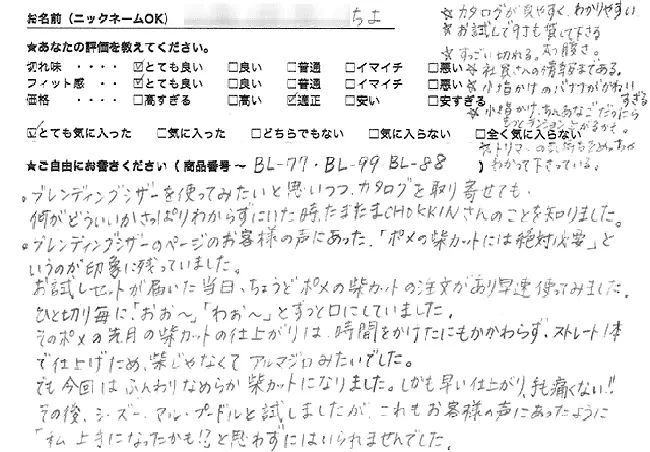 お名前（ニックネームOK） ちよ
★あなたの評価を教えてください。
切れ味 ・・・・ ☑とても良い □良い □普通 □イマイチ □悪い
フィット感 ・・ ☑とても良い □良い □普通 □イマイチ □悪い
価格 ・・・・ □高すぎる □高い ☑適正 □安い □安すぎる
☑とても気に入った □気に入った □どちらでもない □気に入らない □全く気に入らない
☆カタログが見やすく、わかりやすい
☆お試しで何丁も貸して下さる
☆すっごい切れる。
☆社長さんの情熱がある。
☆小指かけのバナナがかわいすぎる
☆小指かけ、あんあなごだったら
もっとテンション上がるかも。
☆トリマーの気持ちをめっちゃ
わかって下さっている。
★ご自由にお書きください（商品番号～ BL-77・BL-99 BL-88 ）
。ブレンディングシザーを使ってみたいと思いつつ、カタログを取り寄せても、
何がどういいかさっぱりわからずにいた時、たまたまCHOKKINさんのことを知りました。
。ブレンディングシザーのページのお客様の声にあった、「ポメの柴カットには絶対必要」と
いうのが印象に残っていました。
お試しセットが届いた当日、ちょうどポメの柴カットの注文があり早速使ってみました。
ひと切り毎に「おお～」「わぉ～」とずっと口にしていました。
そのポメの先月の柴カットの仕上がりは、時間をかけたにもかかわらず、ストレート1本
で仕上げたため、柴じゃなくてアルマジロみたいでした。
でも今回はふんわりなめらか柴カットになりました。しかも早い仕上がり、手も痛くない!!
その後、シーズー、マル、プードルと試しましたが、これもお客様の声にあったように
「私 上手になったかも!?」と思わずにはいられませんでした。